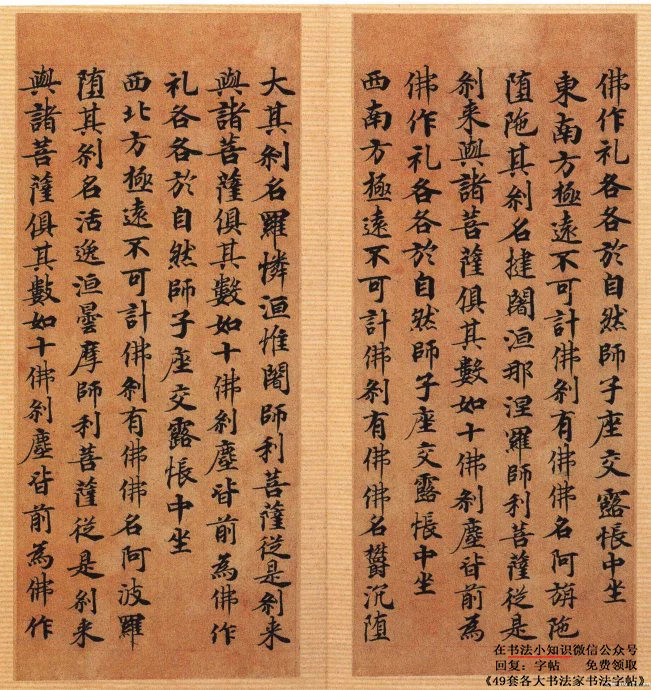 佛作礼各各於自然師子座交露帳中坐
東南方極遠不可計佛刹有佛佛名阿旃陁
堕陁其刹名揵闍洹那涅羅師利菩薩従是
刹来與諸菩薩俱其數如十佛刹塵皆前為
佛作礼各各於自然師子座交露帳中坐
西南方極遠不可計佛刹有佛佛名欝沉堕
大其刹名羅憐洹惟闍師利菩薩従是刹来
與諸菩薩俱其數如十佛刹塵皆前為佛作
礼各各於自然師子座交露帳中坐
西北方極遠不可計佛刹有佛佛名阿波羅
堕其刹名活逸洹曇摩師利菩薩従是刹来
與諸菩薩俱其數如十佛刹塵皆前為佛作
在书法小知识微信公众号
回复：字帖 免费领取
《49套各大书法家书法字帖》